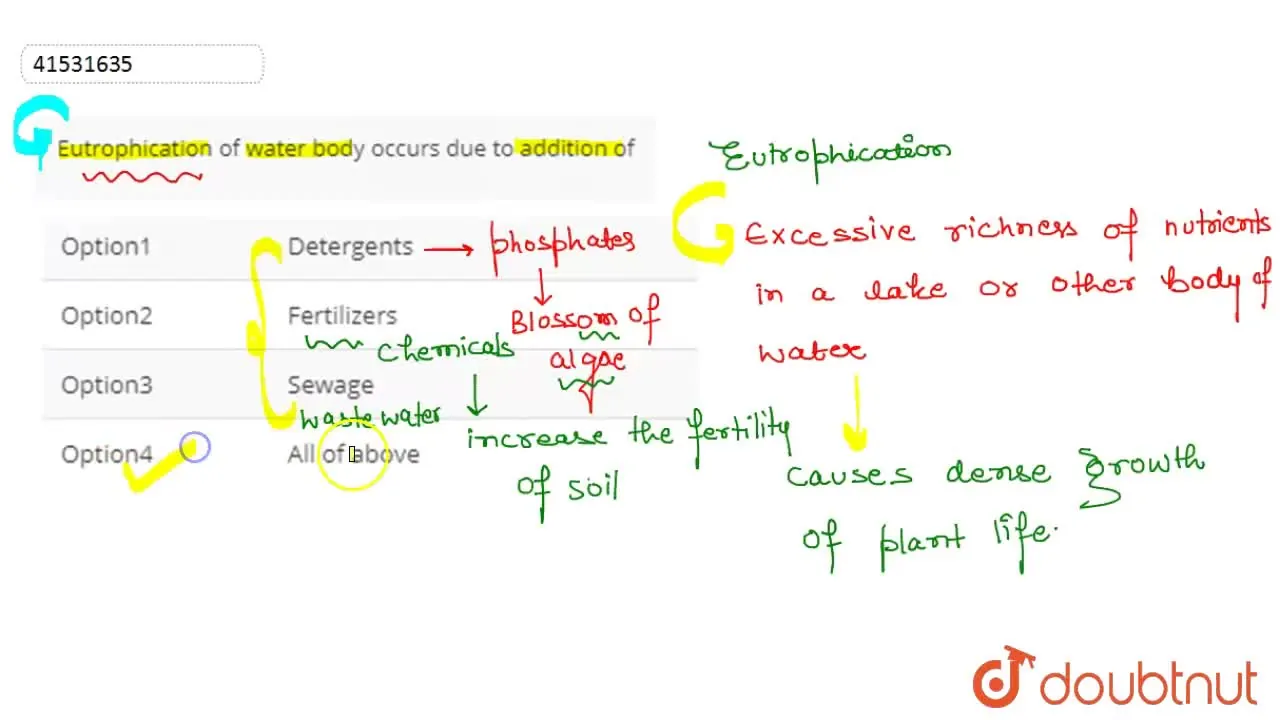 41531635
Eutrophication of water body occurs due to addition of
Option1 Detergents → phosphates
Blossom of
algae
Option2 Fertilizers
chemicals
Option3 Sewage
waste water
increase the fertility
of soil
Option4 All of above
Eutrophication
Excessive richness of nutrients
in a lake or other body of
water
causes dense growth
of plant life.
doubtnut